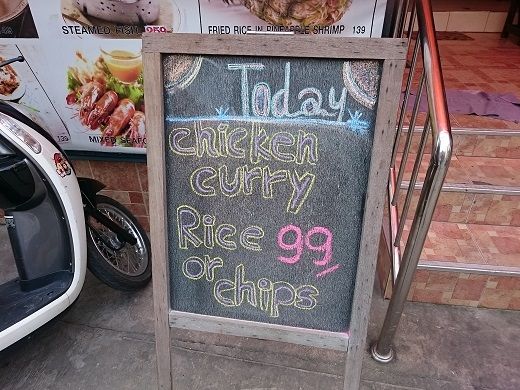 STEAMED FISH 259
FRIED RICE IN PINEAPPLE SHRIMP 139
139
Today
chicken
curry
Rice 99
or
chips